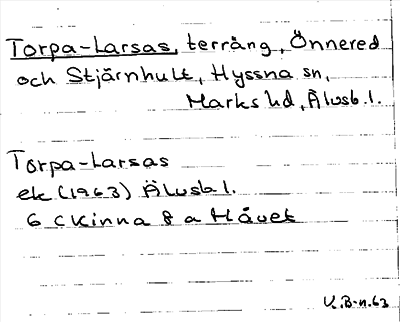 Torpa-Larsas, terräng, Önnered
och Stjärnhult, Hyssna sn,
Marks hd, Älvsb. l.
Torpa-Larsas
ek (1963) Älvsb l.
6 C Kinna 8 a Håvet
V. B-n. 63